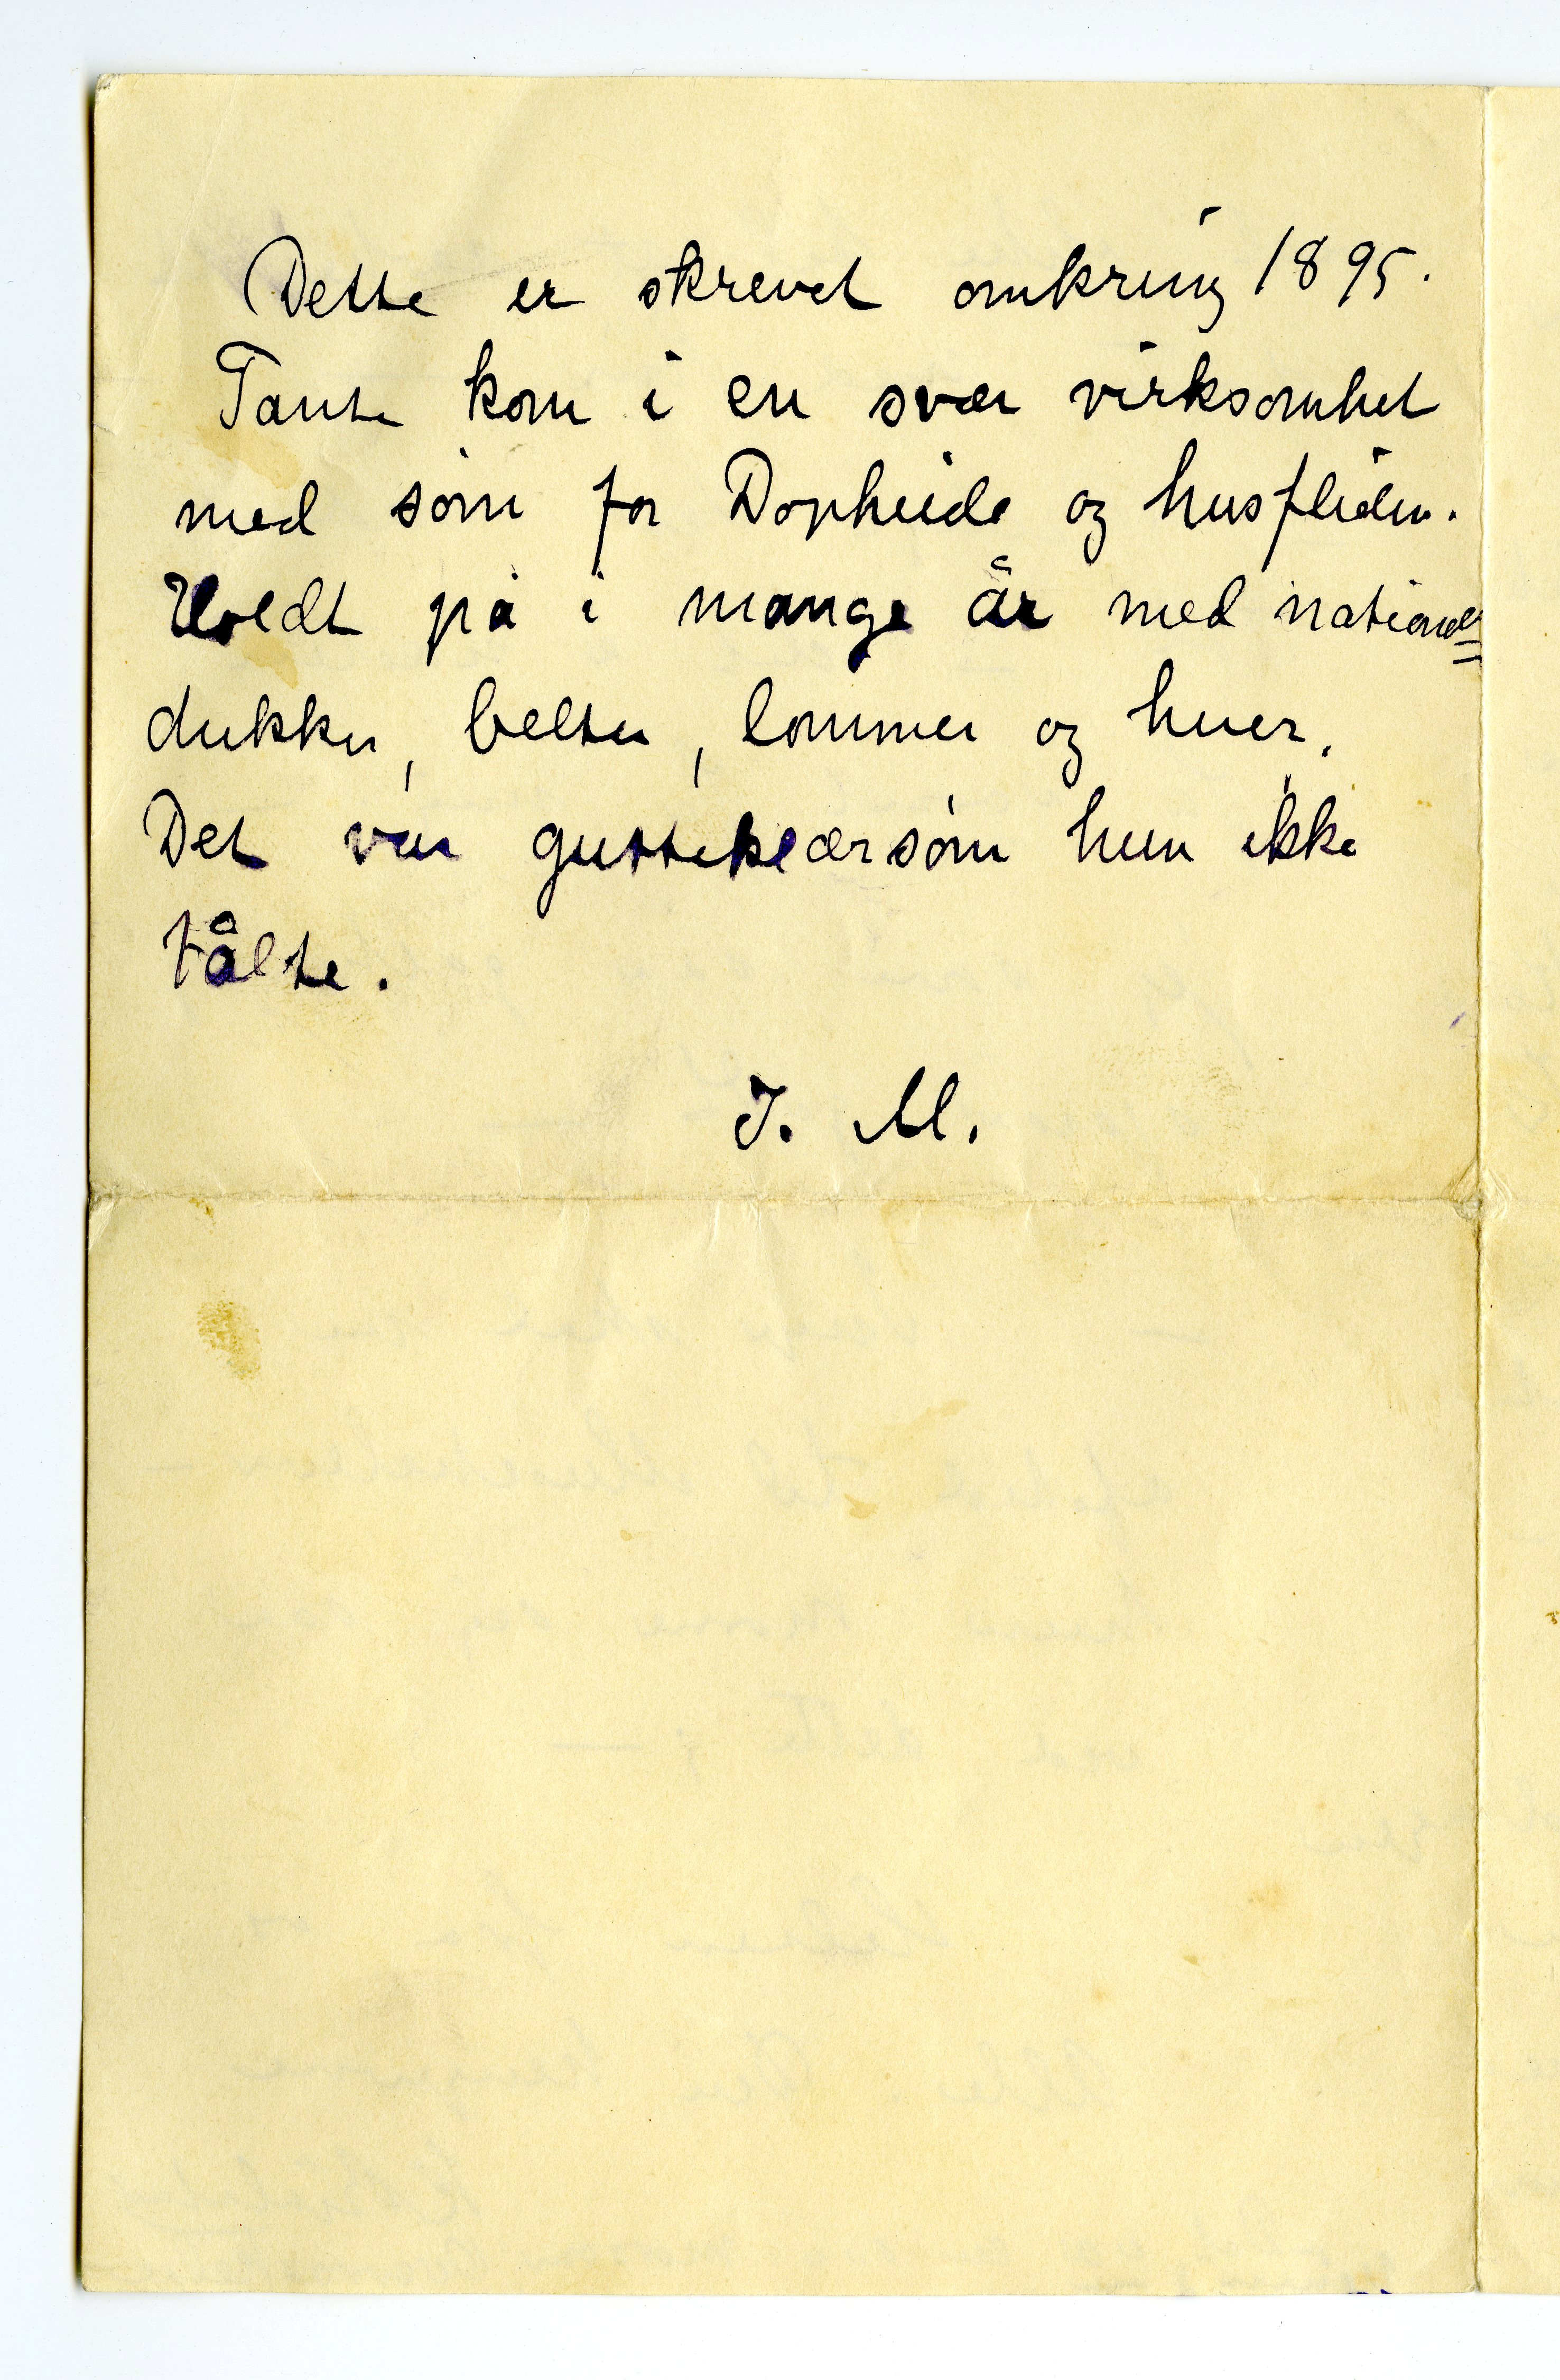 Dette er skrevet omkring 1895.
Tante kom i en svær virksomhet
med søm for Dopheide og husfliden.
Holdt på i mange år med national=
dukker, belter, lommer og huer.
Det var gutteklærsøm hun ikke
tålte.
J. M.